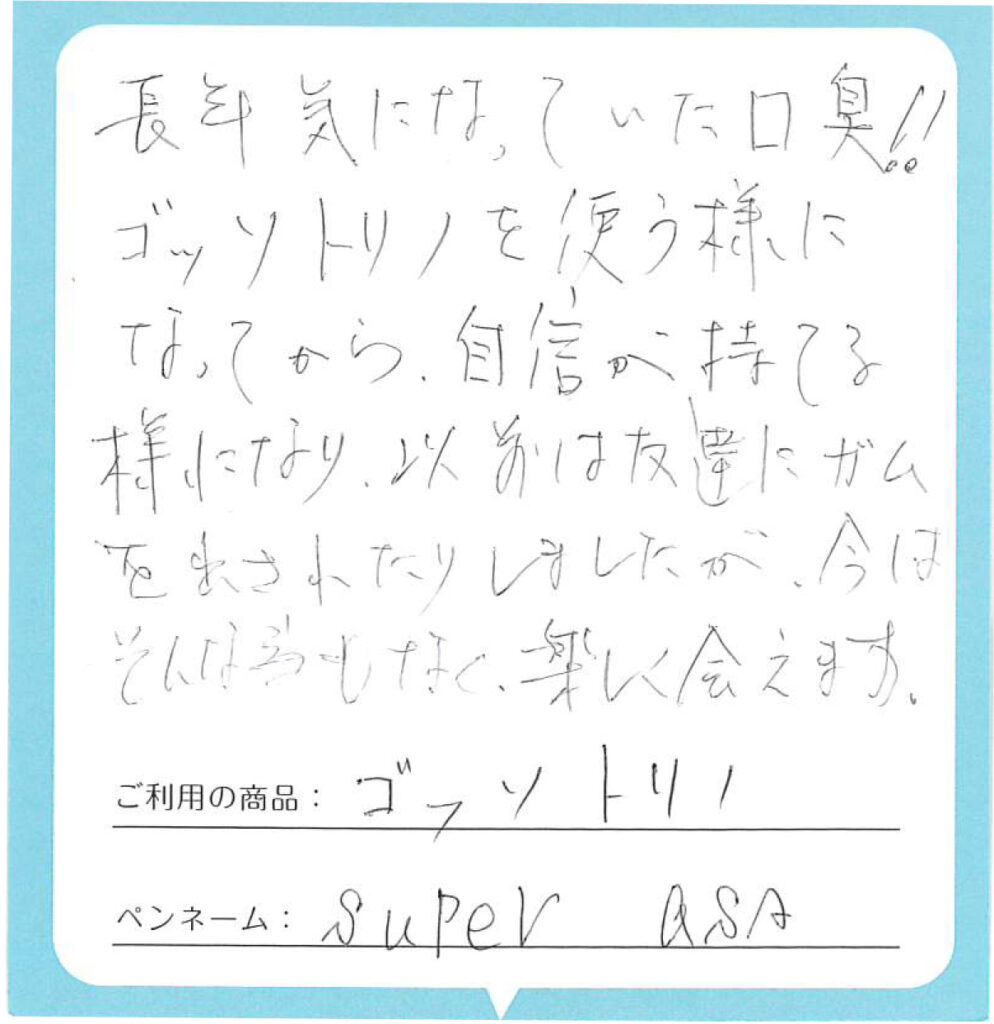 長年気になっていた口臭!!
ゴッソトリノを使う様に
なってから、自信が持てる
様になり、以前は友達にガム
を出されたりしましたが、今は
そんな事もなく、楽しく会えます。
ご利用の商品： ゴッソトリノ
ペンネーム： super asa